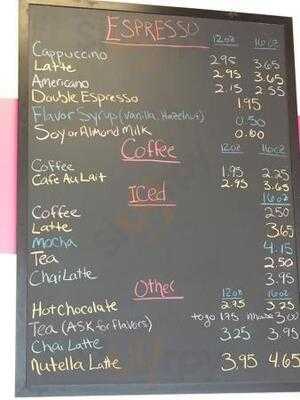 ESPRESSO 12oz 16oz
Cappuccino 2.95 3.65
Latte 2.95 3.65
Americano 2.15 2.55
Double Espresso 1.95
Flavor Syrup (Vanilla, Hazelnut) 0.50
Soy or Almond Milk 0.60
Coffee 12oz 16oz
Coffee 1.95 2.25
Cafe Au Lait 2.95 3.65
ICED 16oz
Coffee 2.50
Latte 3.65
Mocha 4.15
Tea 2.50
Chai Latte 3.95
Other 12oz 16oz
Hot Chocolate 2.75 3.25
Tea (ASK for flavors) to go 1.75 3.00
Chai Latte 3.25 3.95
Nutella Latte 3.95 4.65